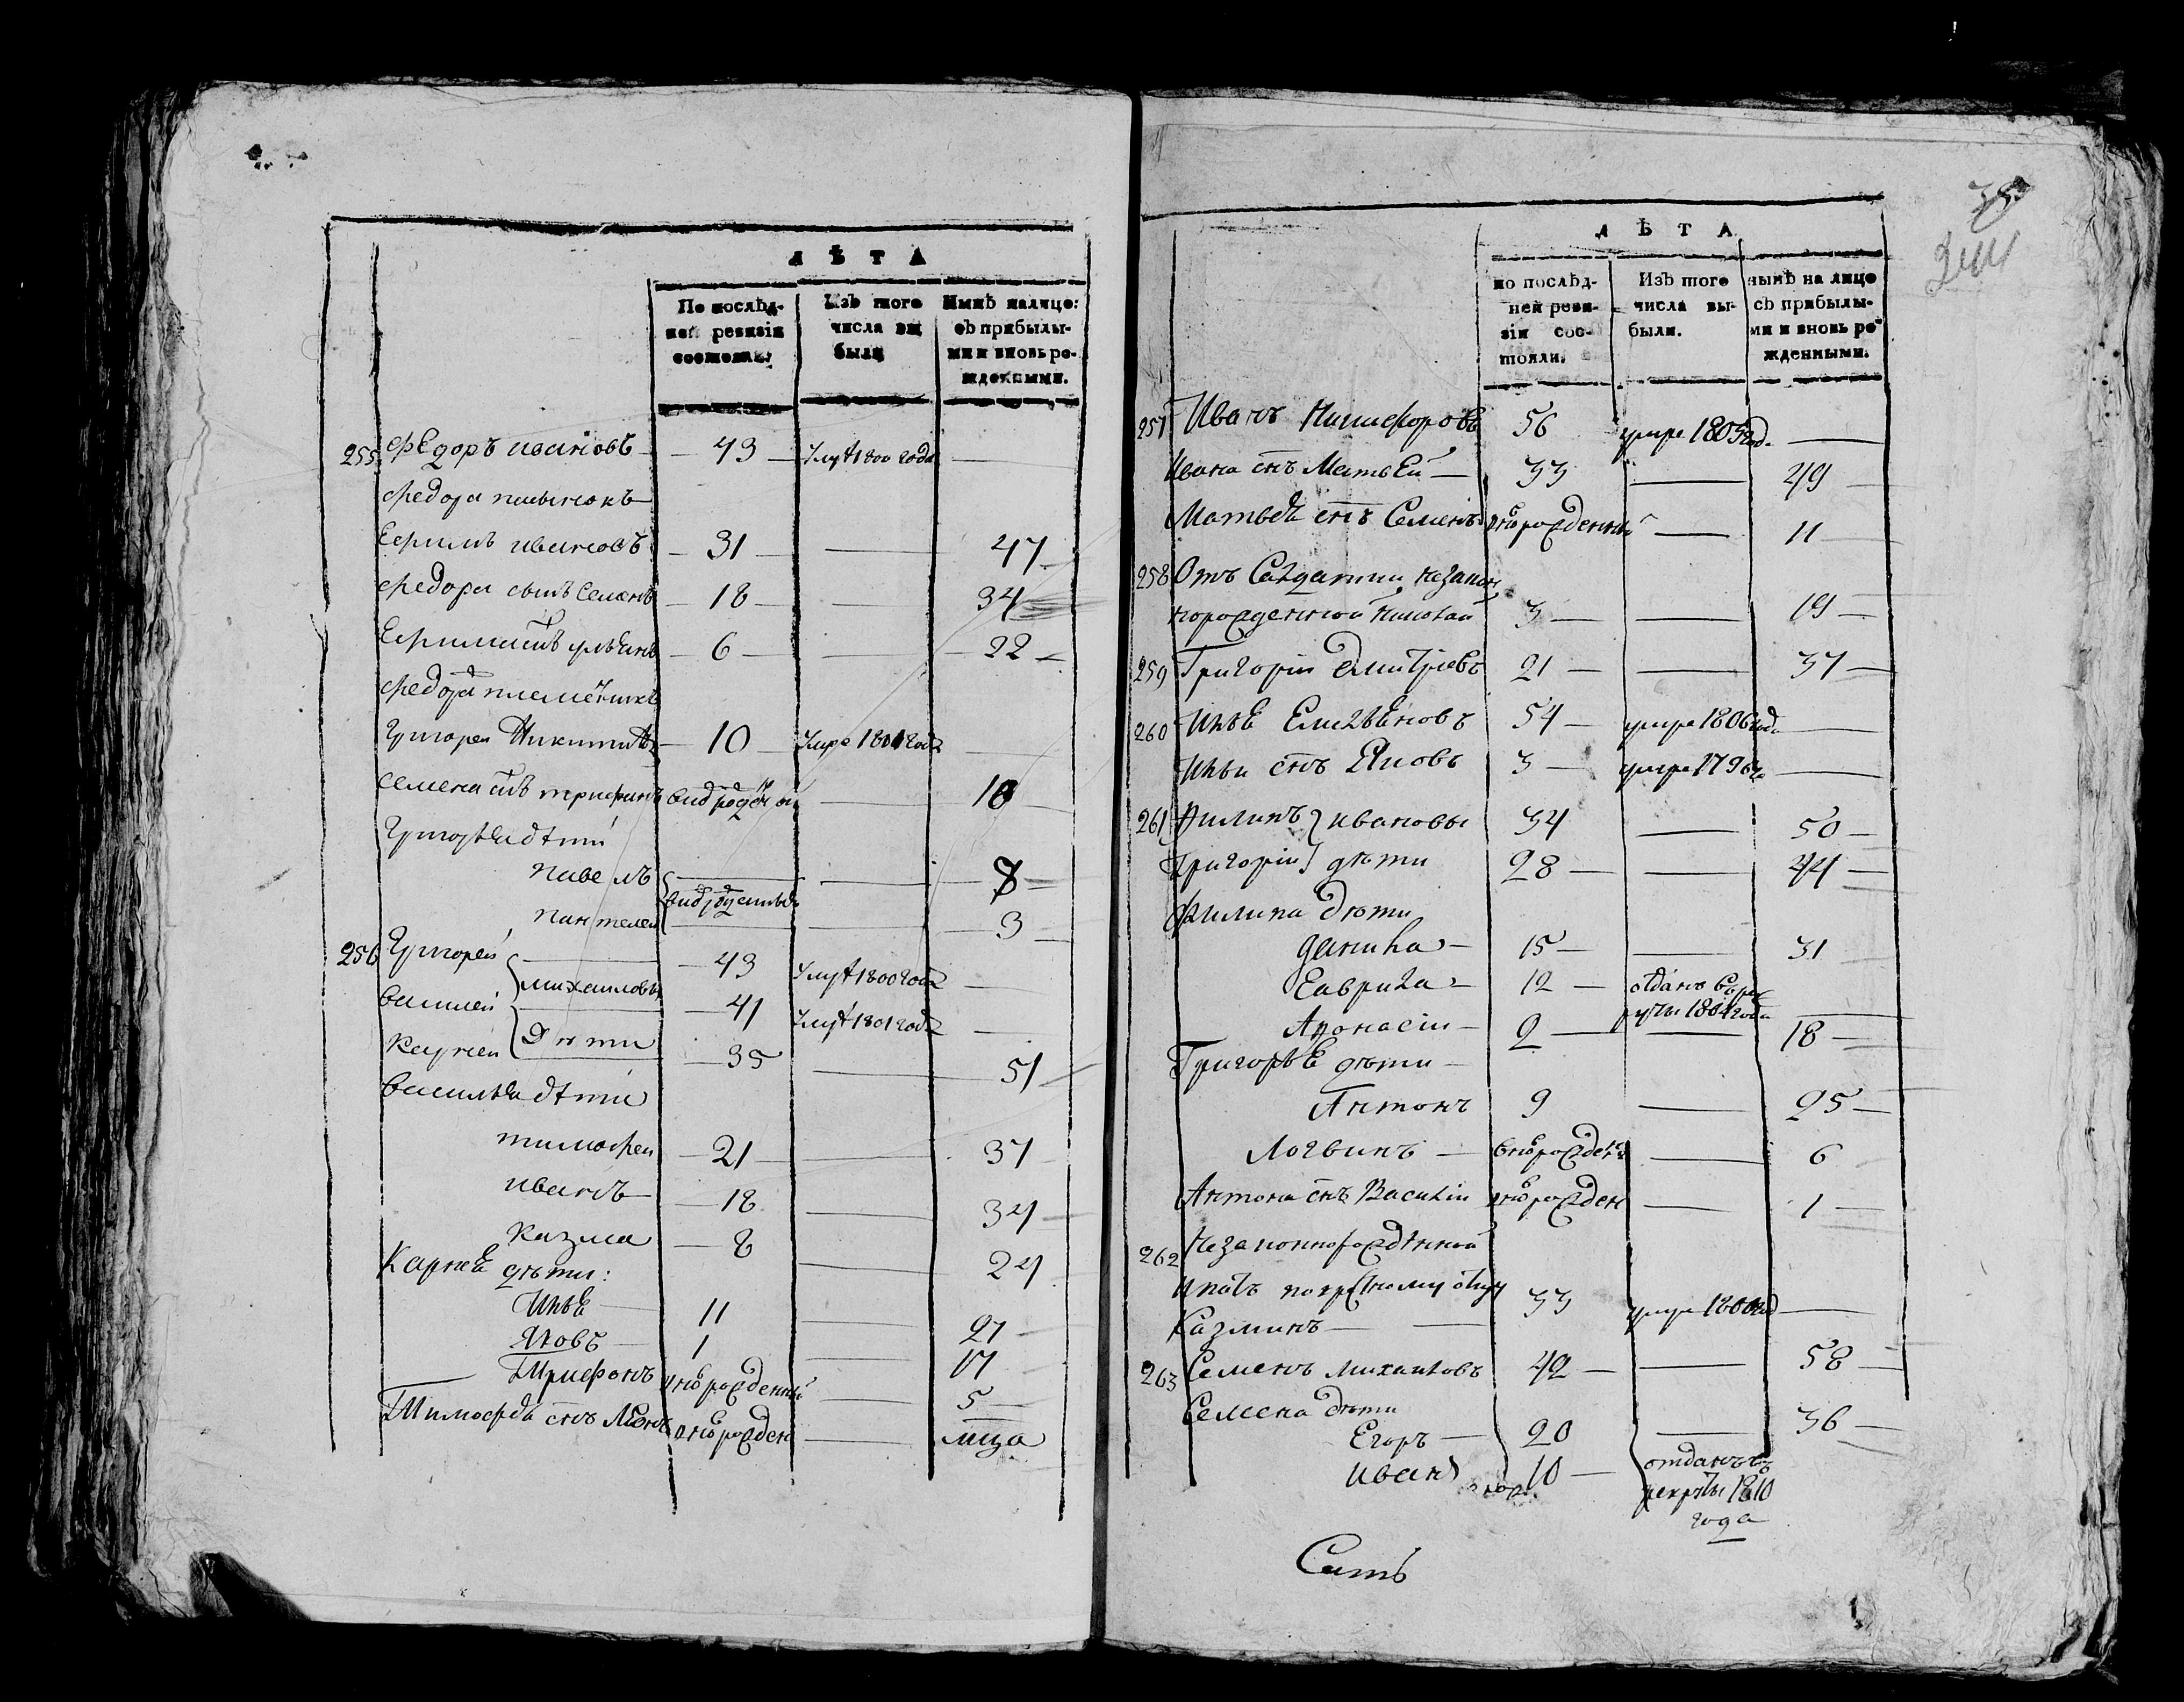 ЛѢТА
По послѣд-
ней ревизіи
состояли.
Изъ того
числа вы
были
Нынѣ налицо:
съ прибылы-
ми и вновь ро-
жденными.
255 Федоръ ивановъ 43 умре 1800 года
Федора племянокъ
Ефимъ ивановъ 31 47
Федора сынъ Семенъ 18 34
Ефима снъ 6 22
Федора племѣникъ
Григорей Никитинъ 10 умре 1801 года
Семена снъ трифанъ 10
Григорья дѣти
павелъ 8
пантелей 3
256 Григорей 43 умре 1800 года
михаиловы
василей 41 умре 1801 года
Дѣти
Карней 35 51
василья дѣти
тимофеи 21 37
иванъ 18 34
казма 8 24
Карнея дѣти:
Илья 11 27
Яковъ 1 17
Трифонъ внвьрожденный 5
Тимофея снъ внвьрожден мца
35
244
ЛѢТА
по послѣд-
ней реви-
зіи сос-
тояли.
Изъ того
числа вы-
были.
нынѣ на лицо
съ прибылы-
ми и вновь ро-
жденными.
257 Иванъ Никифоровъ 56 умре 1805 год.
Ивана снъ Матвей 33 49
Матвея снъ Семенъ внврожденны 11
258 Отъ Салдатки незакон
норожденной Николай 3 19
259 Григоріи Дмитріевъ 21 37
260 Илья 54 умре 1806 года
Ильи снъ Яковъ 3 умре 1796 го
261 Филипъ ивановы 34 50
Григоріи дѣти 28 44
Филипа дѣти
данила 15 31
Гаврила 12 отданъ в рек
руты 1804 года
Афонасіи 2 18
Григорья дѣти
Антонъ 9 25
Логвинъ внврожден 6
Антона снъ Василіи внврожден 1
262 Незаконнорожденной
Игнатъ по крестному отцу 33 умре 1800 год
Казминъ
263 Семенъ михаиловъ 42 58
Семена дѣти
Егоръ 20 36
Иванъ 10 отданъ въ
рекруты 1810
года